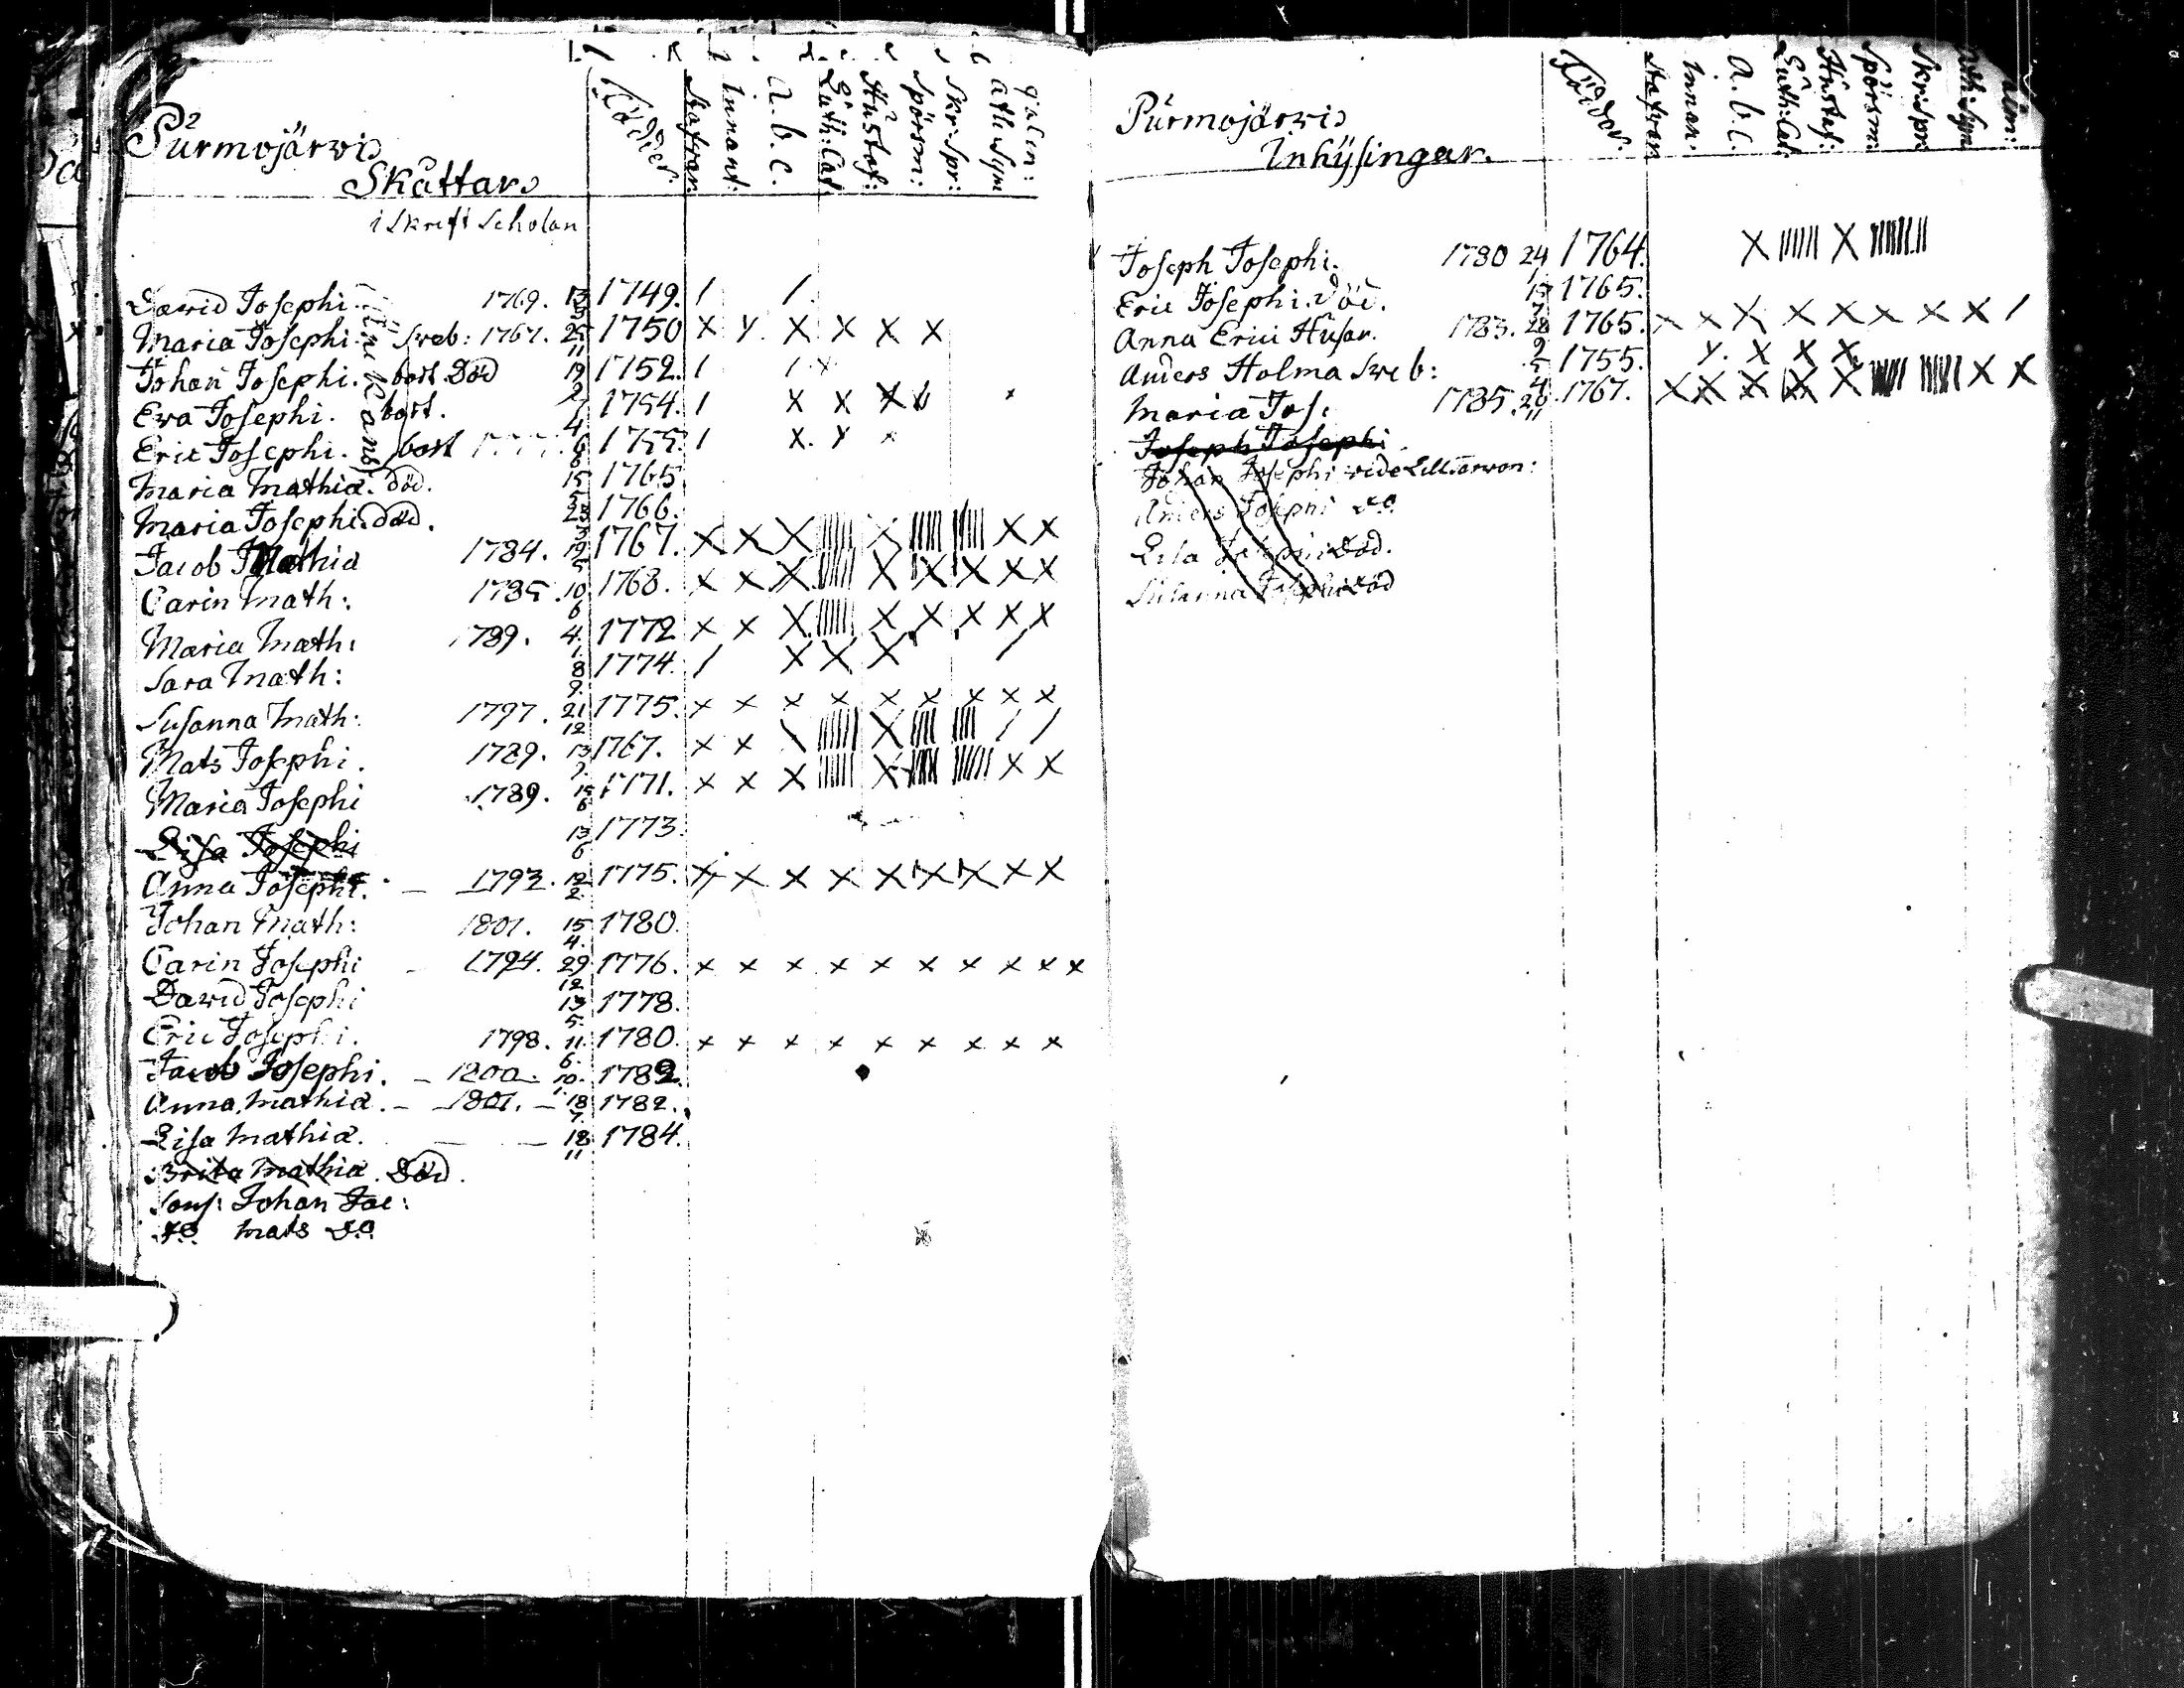 Purmojärvi
Skattar
i Skrift Scholan
Födder. Stafvan Innant: A.b.c. Luth: Cat: Hustaf: Spörsm: Skr: Spr: Ath: Sym
David Josephi. 1769. 13 1749. / /.
Maria Josephi. Sveb: 1767. 25/11 1750 X y. X X X X
Johan Josephi. bort Död 19/2 1752. / / x
Ewa Josephi. bort. 7/4 1754. / X X X x
Eric Josephi. bort 6/8 1755. / X. y x
Maria Mathiæ. död. 15/5 1765
Maria Josephi. död. 23/3 1766.
Jacob Mathiæ 1784. 19/5 1767. X X X |||||| X |||||| |||||| X X
Carin Math: 1785. 10/6 1768. X X X |||||| X X X X X
Maria Math: 1789. 4./1. 1772 X X X |||||| X X X X X
Sara Math: 8/9. 1774. / X X X /
Susanna Math: 1797. 21/12 1775. X X X X X X X X X
Mats Josephi. 1789. 13/9. 1767. X X \ |||||| X |||| |||| / /
Maria Josephi 1789. 15/6 1771. X X X |||||| X |||||| |||||| X X
Lisa Josephi 13/6 1773.
Anna Josephi. — 1793. 12/2. 1775. X X X X X X X X X
Johan Math: 1801. 15/4. 1780.
Carin Josephi 1794. 29/12 1776. X X X X X X X X X X
David Josephi 13/5. 1778.
Eric Josephi. 1798. 11/6. 1780. X X X X X X X X X
Jacob Josephi. — 1800. 10./1. 1782.
Anna Mathiæ. — 1801. — 18/7. 1782.
Lisa Mathiæ. — — 18/11 1784.
Brita Mathiæ. Död.
Sons: Johan Jac:
do. Mats do.
Purmojärvi
Inhysingar.
Födder. Stafvan Innan: A.b.c. Luth: Cat: Hustaf: Spörsm: Skr: Spr: Ath: Sym
Joseph Josephi. 1780 24/1 1764. X |||||| X ||||||||
Eric Josephi. Död. 15/7 1765.
Anna Erici Husar. 1783. 28/9 1765. X X X X X X X X /
Anders Holma Sveb: 5/4 1755. y. X X X
Maria Jos: 1785. 26/11 1767. X X X X X |||||| |||||| X X
Joseph Josephi
Johan Josephi vide
Anders Josephi do.
Lisa Josephi Död.
Susanna Josephi död